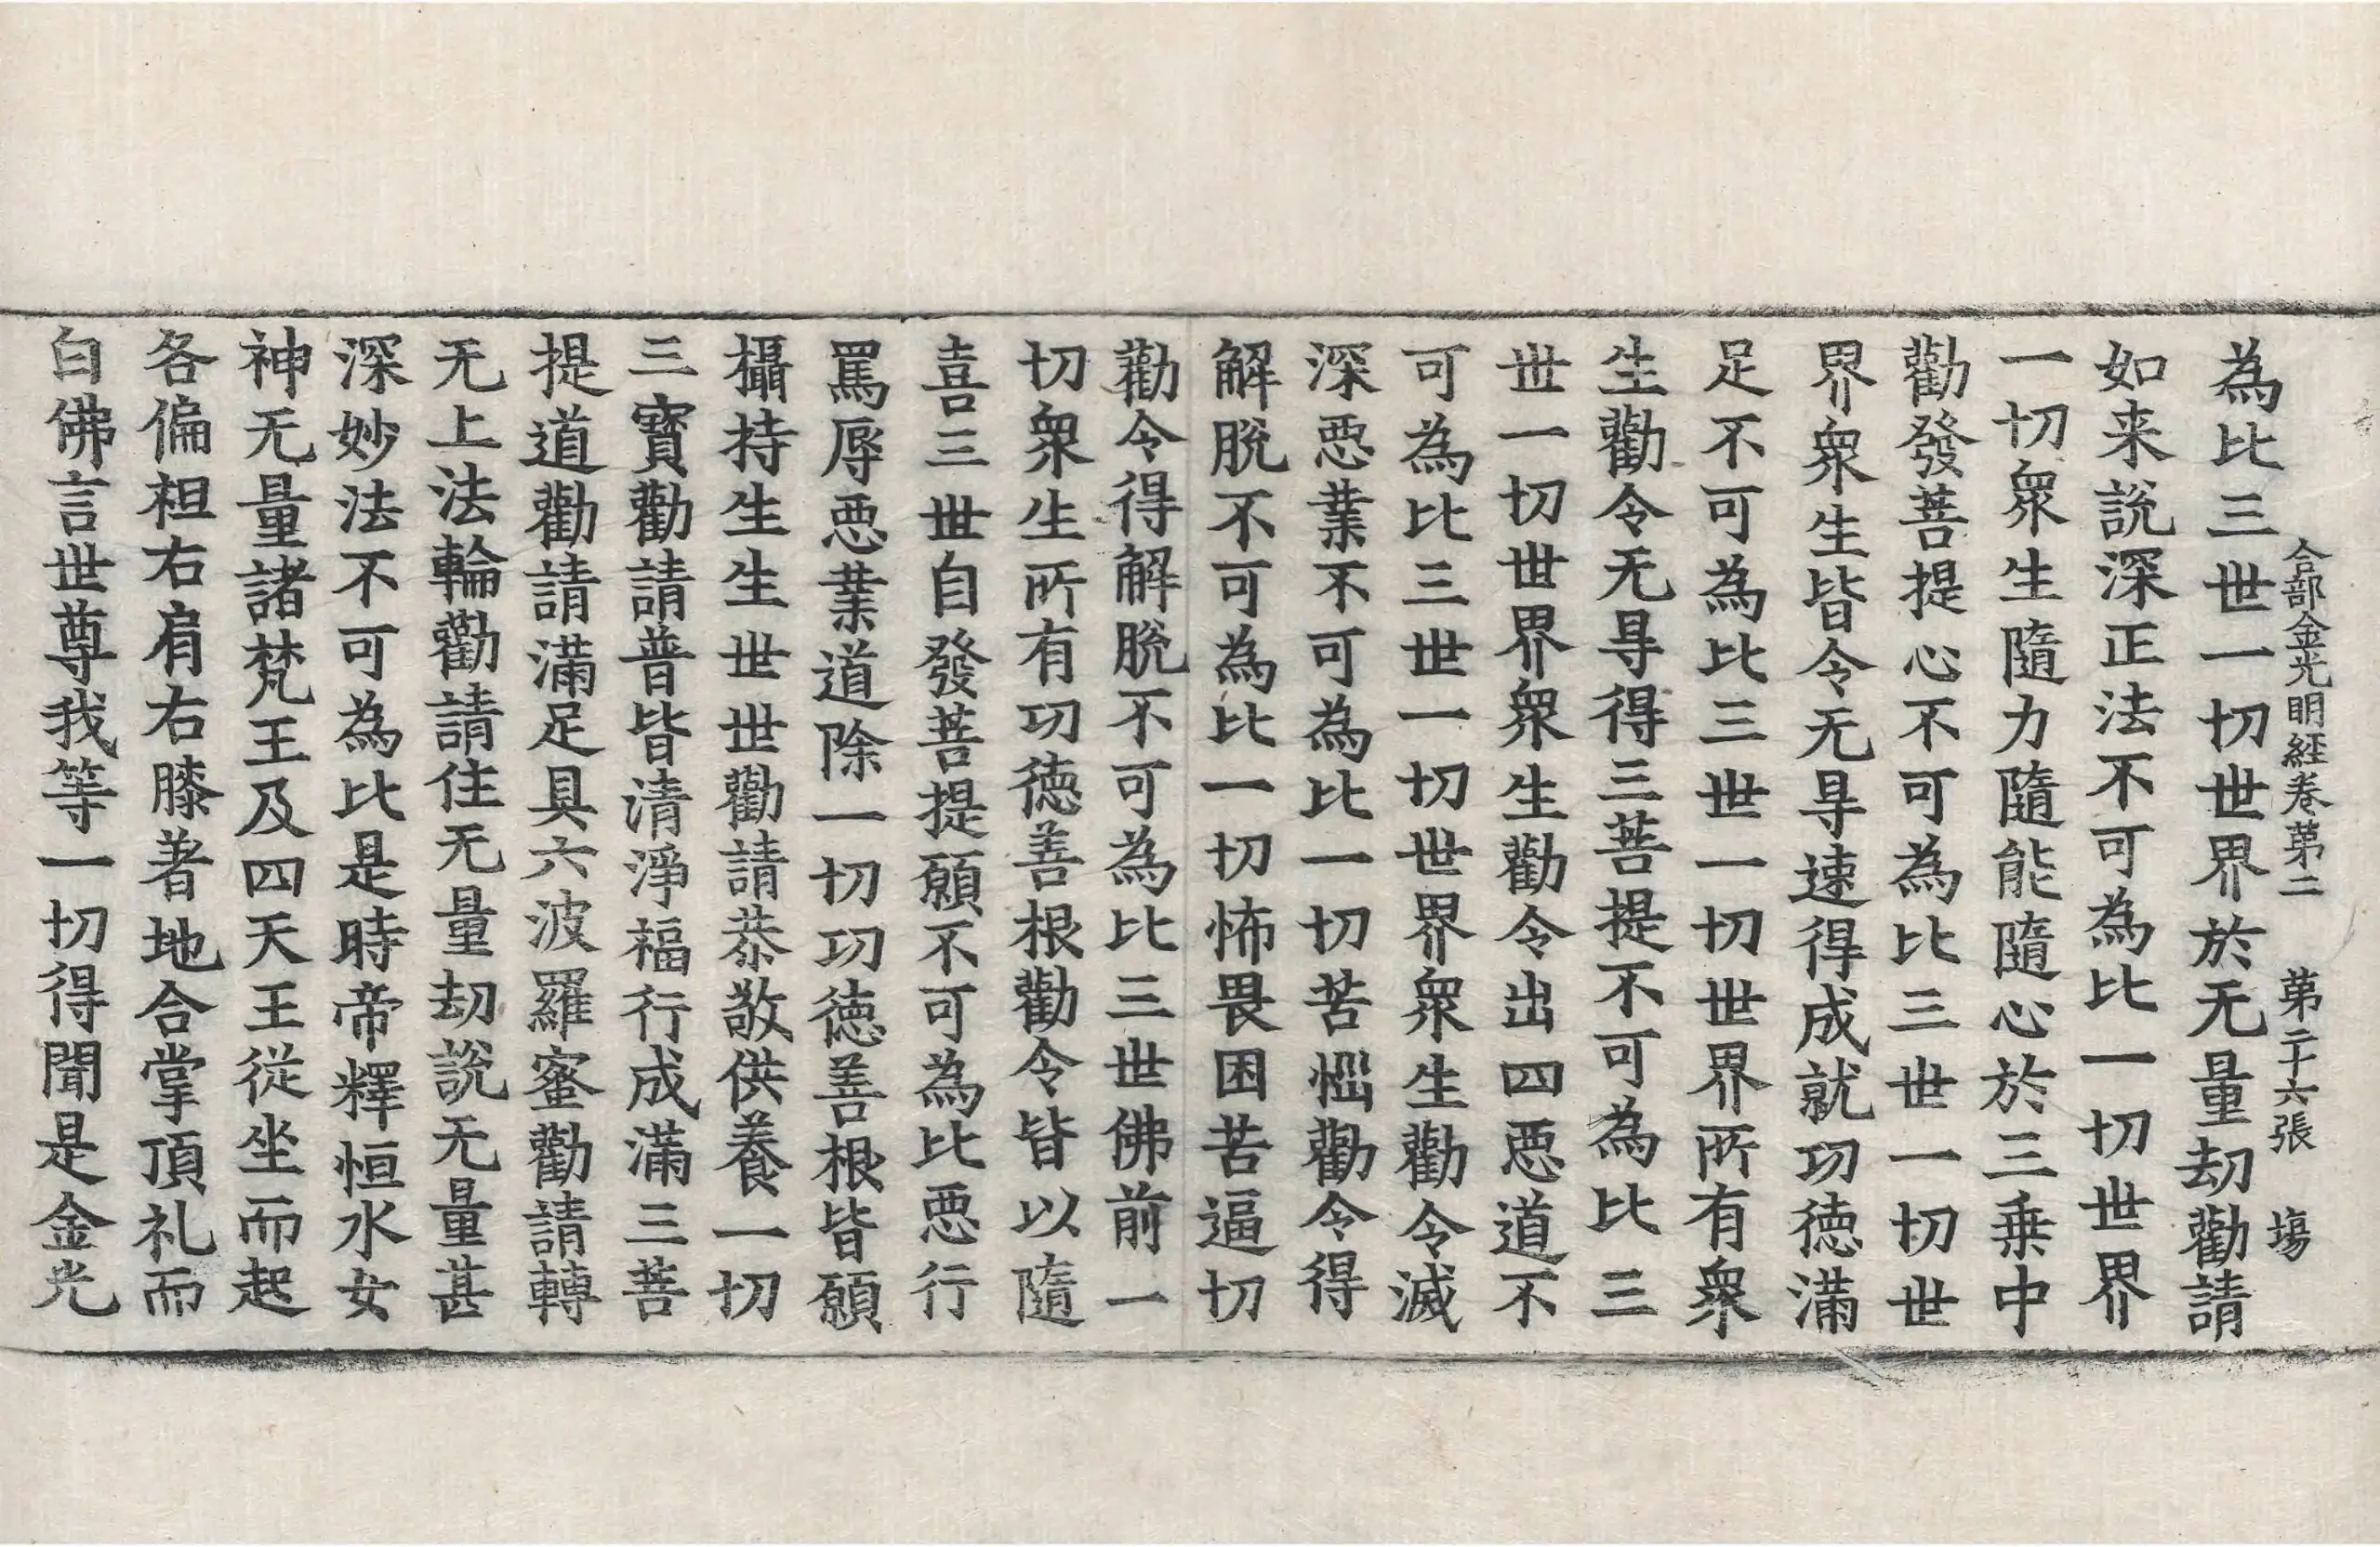 合部金光明経卷苐二　苐二十六張　塲
為比三世一切世界於无量劫勸請
如来説深正法不可為比一切世界
一切衆生隨力隨能隨心於三乗中
勸發菩提心不可為比三世一切世
界衆生皆令无㝵速得成就功徳滿
足不可為比三世一切世界所有衆
生勸令无㝵得三菩提不可為比三
世一切世界衆生勸令出四悪道不
可為比三世一切世界衆生勸令滅
深悪業不可為比一切苦惱勸令得
解脫不可為比一切怖畏困苦逼切
勸令得解脫不可為比三世佛前一
切衆生所有功徳善根勸令皆以隨
喜三世自發菩提願不可為比悪行
罵辱悪業道除一切功徳善根皆願
攝持生生世世勸請恭敬供養一切
三寳勸請普皆清淨福行成滿三菩
提道勸請滿足具六波羅蜜勸請轉
无上法輪勸請住无量劫說无量甚
深妙法不可為比是時帝釋恒水女
神无量諸梵王及四天王従坐而起
各偏袒右肩右膝著地合掌頂礼而
白佛言世尊我等一切得聞是金光